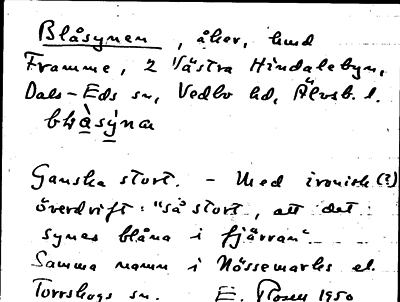 Blåsynen, åker, hmd
Framme, 2 Västra Hindalebyn,
Dals-Eds sn, Vedbo hd, Älvsb. l.
blàsýna
Ganska stort. - Med ironisk (?)
överdrift: "så stort, att det
synes blåna i fjärran"
Samma namn i Nössemarks el.
Torrskogs sn. E. 1950